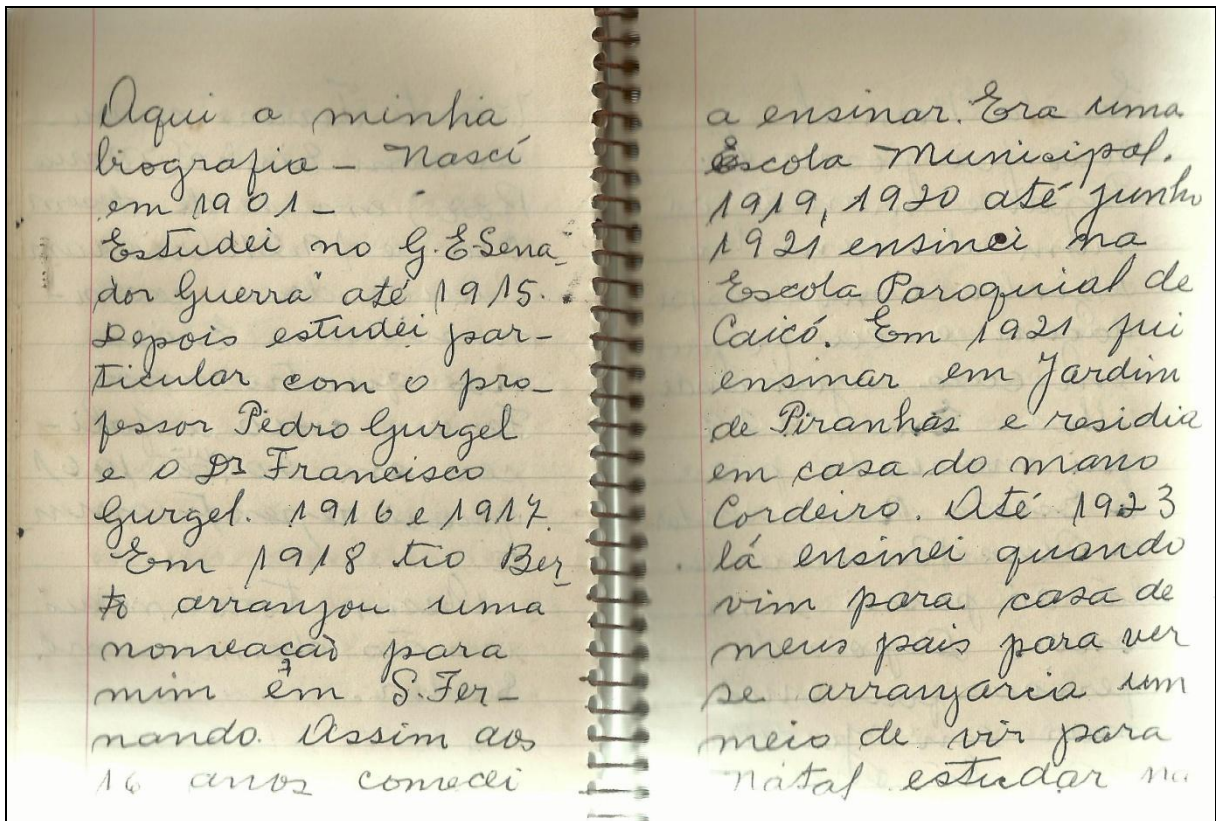 Aqui a minha
biografia - Nasci
em 1901 -
Estudei no G. E. Sena-
dor Guerra" até 1915.
Depois estudei par-
ticular com o pro-
fessor Pedro Gurgel
e o Dr Francisco
Gurgel. 1916 e 1917.
Em 1918 tio Ber-
to arranjou uma
nomeação para
mim em S. Fer-
nando. Assim aos
16 anos comecei
a ensinar. Era uma
Escola Municipal.
1919, 1920 até junho
1921 ensinei na
Escola Paroquial de
Caicó. Em 1921 fui
ensinar em Jardim
de Piranhas e residia
em casa do mano
Cordeiro. Até 1923
lá ensinei quando
vim para casa de
meus pais para ver
se arranjaria um
meio de vir para
Natal estudar na